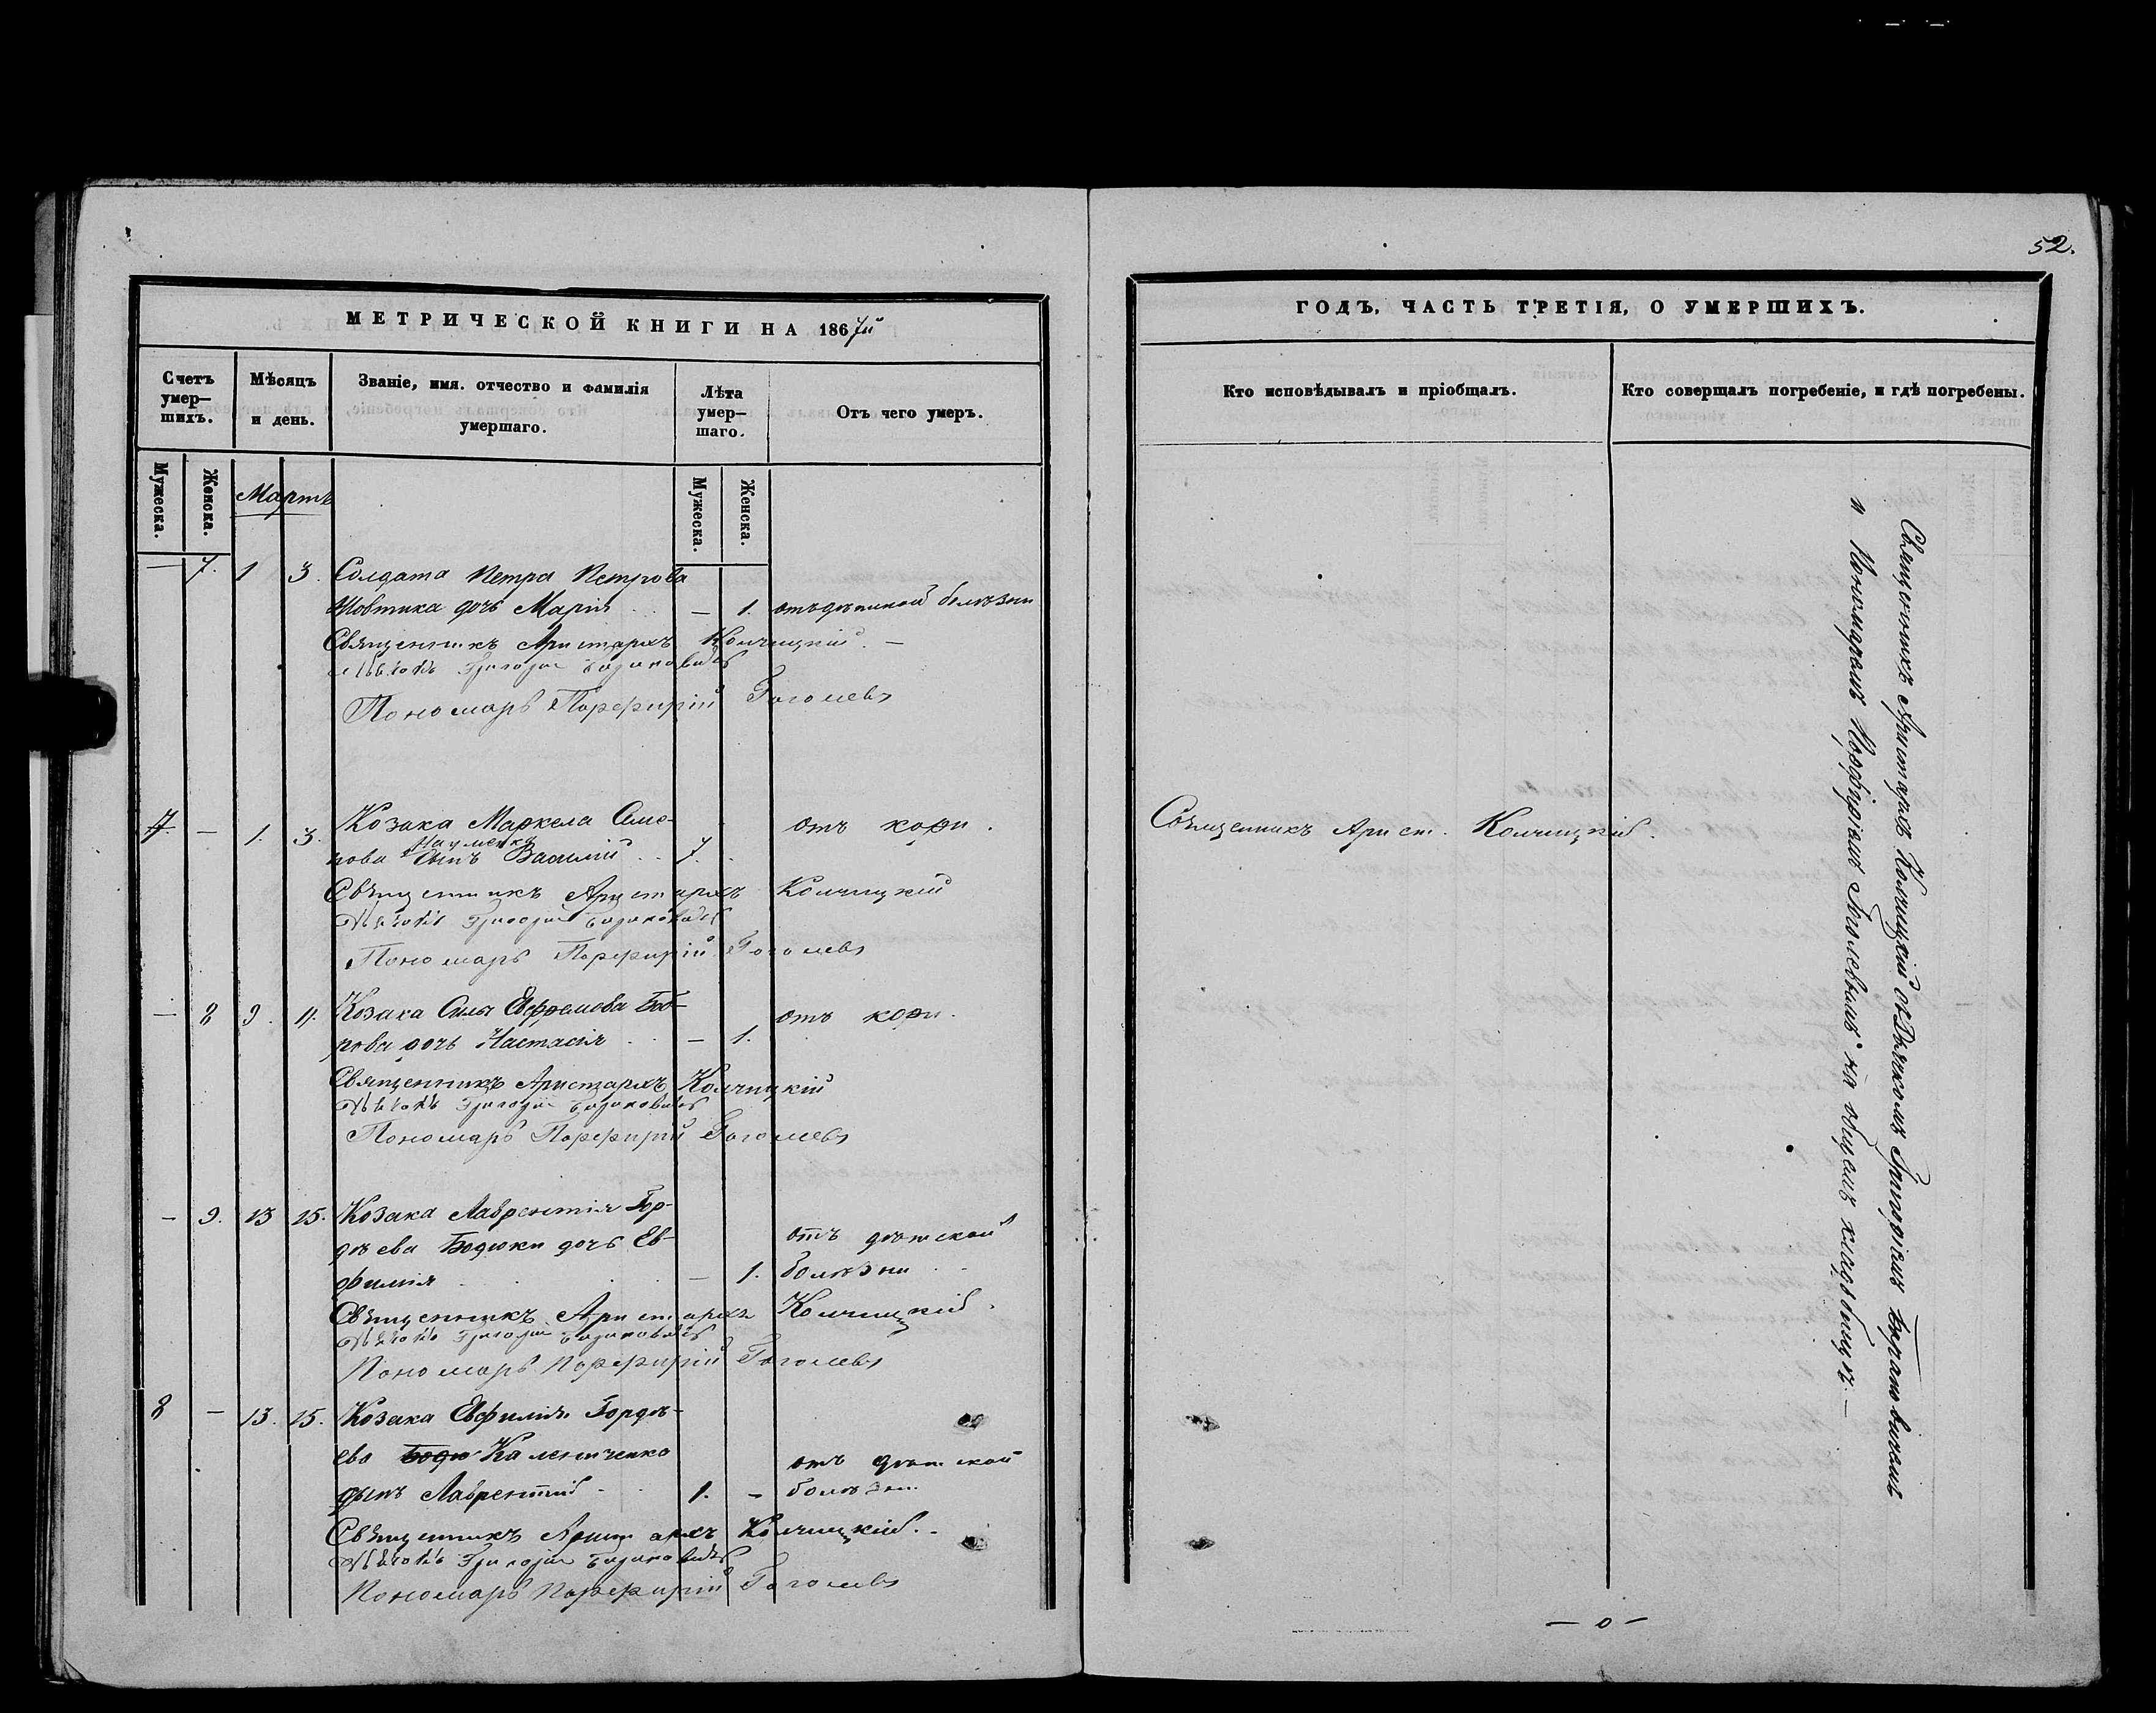 52.
МЕТРИЧЕСКОЙ КНИГИ НА 1867й
ГОДЪ, ЧАСТЬ ТРЕТІЯ, О УМЕРШИХЪ.
Счетъ умер—шихъ.
Мѣсяцъ и день.
Званіе, имя. отчество и фамилія умершаго.
Лѣта умер—шаго.
Отъ чего умеръ.
Кто исповѣдывалъ и пріобщалъ.
Кто совершалъ погребеніе, и гдѣ погребены.
Мужеска.
Женска.
Мартъ
Мужеска.
Женска.
— 7. 1 3. Солдата Петра Петрова
Жовтика дочь Марія — 1. отъ дѣтской болѣзни
Священникъ Аристархъ Колчицкій. —
Дьячокъ Григорій
Пономарь Порфирій Гоголевъ
7 — 1. 3. Козака Маркела Симо-
нова Науменка сынъ Василій 7. отъ кори.
Священникъ Арист. Колчицкій.
Священникъ Аристархъ Колчицкій
Дьячокъ Григорій
Пономарь Порфирій Гоголевъ
— 8 9. 11. Козака Силы Евфремова Боб-
рова дочь Настасія — 1. отъ кори.
Священникъ Аристархъ Колчицкій
Дьячокъ Григорій
Пономарь Порфирій Гоголевъ
— 9. 13 15. Козака Лаврентія Гор-
дѣева Бодюки дочь Ев-
фимія — 1. отъ дѣтской болѣзни
Священникъ Аристархъ Колчицкій.
Дьячокъ Григорій
Пономарь Порфирій Гоголевъ
8 — 13. 15. Козака Евфимія Гордѣ-
ева Бодю Калениченко
сынъ Лаврентій 1. — отъ дѣтской болѣзни
Священникъ Аристархъ Колчицкій. -
Дьячокъ Григорій
Пономарь Порфирій Гоголевъ
Священникъ Аристархъ Колчицкій съ Дьячкомъ Григоріемъ
и Пономаремъ Порфиріемъ Гоголевымъ на общемъ кладбищѣ. —
— о —